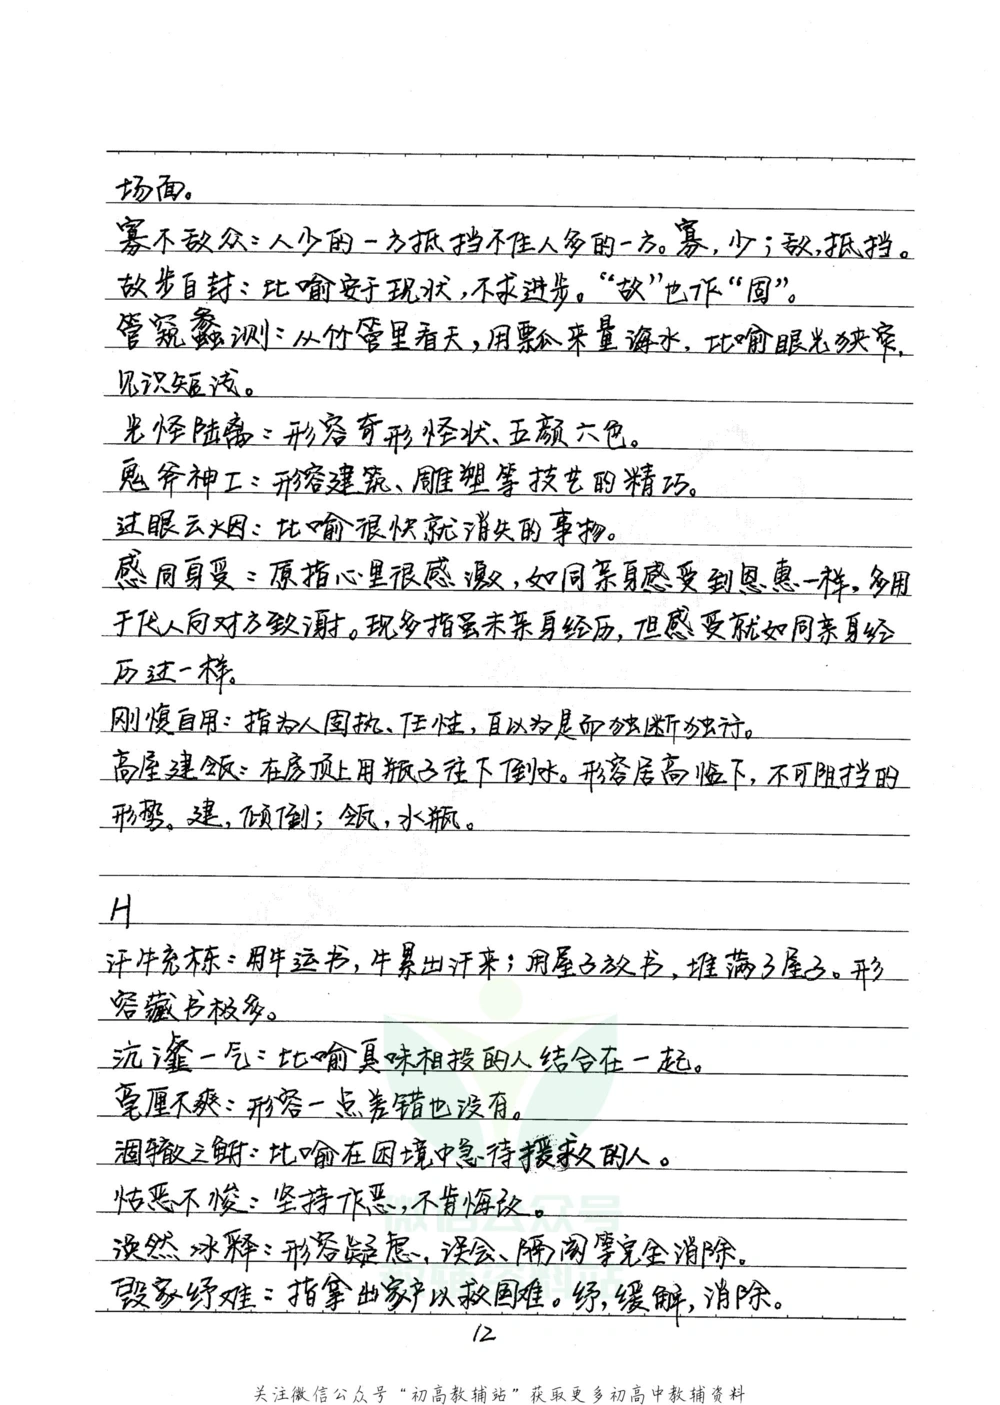 场面。
寡不敌众：人少的一方抵挡不住人多的一方。寡，少；敌，抵挡。
故步自封：比喻安于现状，不求进步。“故”也作“固”。
管窥蠡测：从竹管里看天，用瓢来量海水，比喻眼光狭窄，
见识短浅。
光怪陆离：形容奇形怪状、五颜六色。
鬼斧神工：形容建筑、雕塑等技艺的精巧。
过眼云烟：比喻很快就消失的事物。
感同身受：原指心里很感激，如同亲身感受到恩惠一样，多用
于代人向对方致谢。现多指虽未亲身经历，但感受就如同亲身经
历过一样。
刚愎自用：指为人固执、任性，自以为是而独断独行。
高屋建瓴：在房顶上用瓶子往下倒水。形容居高临下，不可阻挡的
形势。建，倾倒；瓴，水瓶。
H
汗牛充栋：用牛运书，牛累出汗来；用屋子放书，堆满了屋子。形
容藏书极多。
沆瀣一气：比喻臭味相投的人结合在一起。
毫厘不爽：形容一点差错也没有。
涸辙之鲋：比喻在困境中急待援救的人。
怙恶不悛：坚持作恶，不肯悔改。
涣然冰释：形容疑虑、误会、隔阂等完全消除。
毁家纾难：指拿出家产以救国难。纾，缓解，消除。
12
关注微信公众号“初高教辅站”获取更多初高中教辅资料